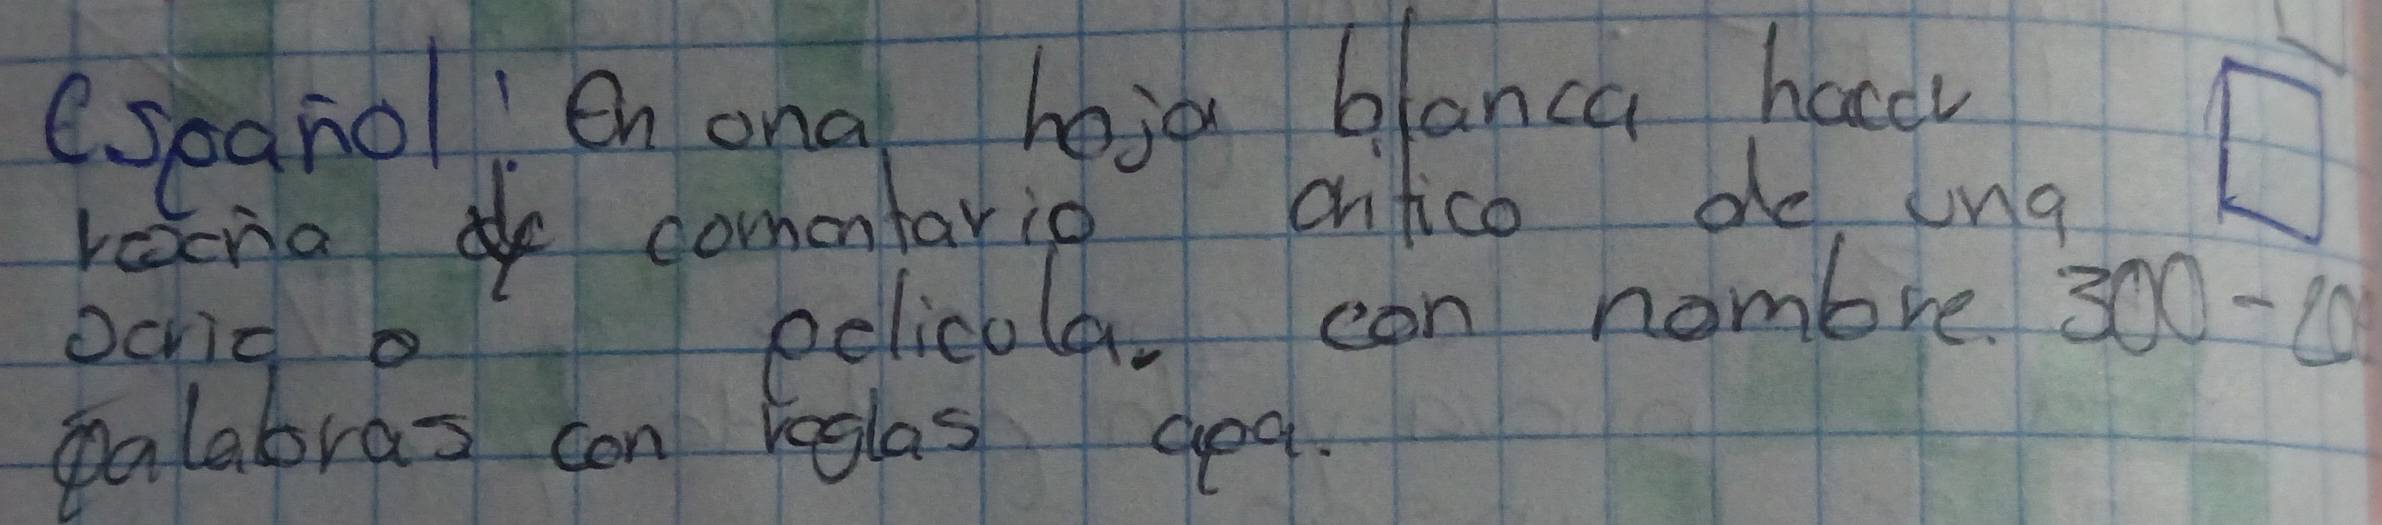 español: En ona hoja blanca hacer
receña de comentario critico de una
serie o pelicola. con nombre. 300-
palabras con reglas apa.